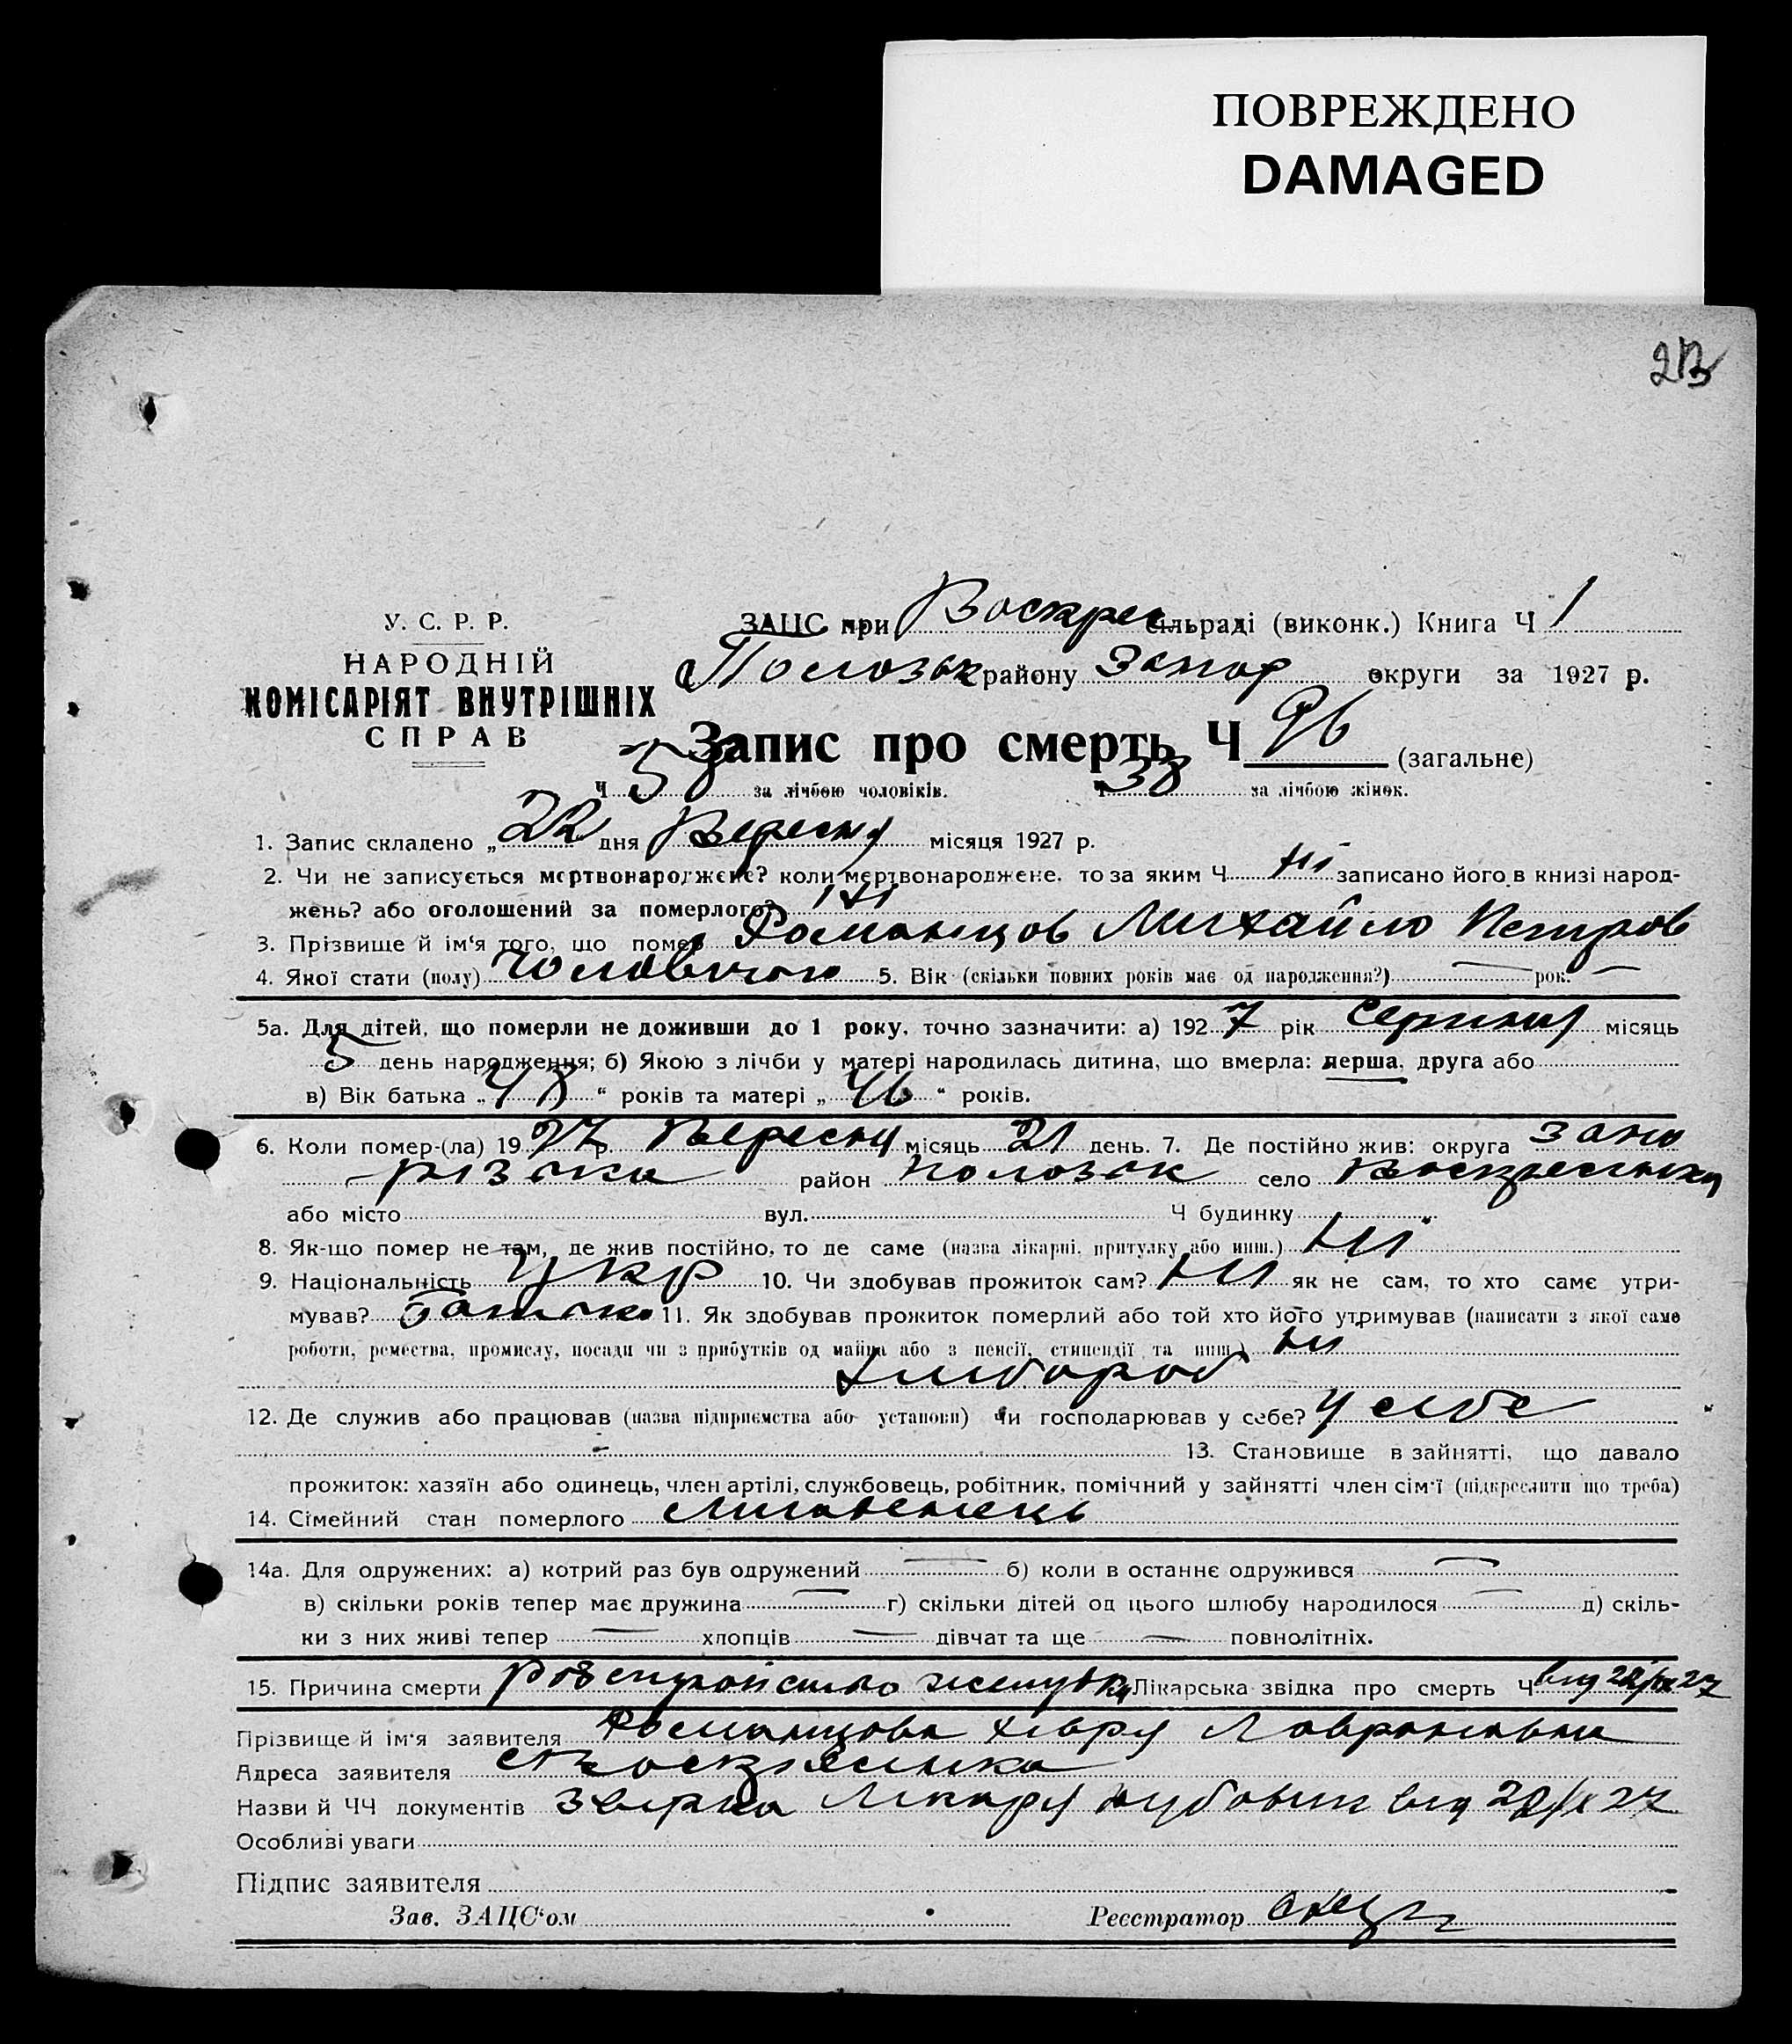 ПОВРЕЖДЕНО
DAMAGED
213
У. С. Р. Р.
НАРОДНІЙ
КОМІСАРІЯТ ВНУТРІШНІХ
СПРАВ
ЗАЦС при Воскрес сільраді (виконк.) Книга Ч 1
Пологзьк району Запор округи за 1927 р.
Запис про смерть Ч 96 (загальне)
Ч 58 за лічбою чоловіків. Ч 38 за лічбою жінок.
1. Запис складено „ 22 " дня Вересня місяця 1927 р.
2. Чи не записується мертвонароджене? коли мертвонароджене, то за яким Ч ні записано його в книзі народ-
жень? або оголошений за померлого? ні
3. Прізвище й ім'я того, що помер Романцов Михайло Петров
4. Якої стати (полу) Чоловічої 5. Вік (скільки повних років має од народження?) — рок. —
5а. Для дітей, що померли не доживши до 1 року, точно зазначити: а) 192 7 рік Серпня місяць
5 день народження; б) Якою з лічби у матері народилась дитина, що вмерла: перша, друга або
в) Вік батька „ 48 " років та матері „ 46 " років.
6. Коли помер-(ла) 19 27 р. Вересня місяць 21 день. 7. Де постійно жив: округа Запо
різька район Полозьк село Воскресенка
або місто вул. Ч будинку
8. Як-що помер не там, де жив постійно, то де саме (назва лікарні, притулку або инш.) Ні
9. Національність Укр 10. Чи здобував прожиток сам? Ні як не сам, то хто саме утри-
мував? Батько 11. Як здобував прожиток померлий або той хто його утримував (написати з якої саме
роботи, ремества, промислу, посади чи з прибутків од майна або з пенсії, стипендії та инш.) Ні
Хлібороб
12. Де служив або працював (назва підприємства або установи) чи господарював у себе? У себе
13. Становище в зайнятті, що давало
прожиток: хазяїн або одинець, член артілі, службовець, робітник, помічний у зайнятті член сім'ї (підкреслити що треба)
14. Сімейний стан померлого Младенець
14а. Для одружених: а) котрий раз був одружений — б) коли в останнє одружився —
в) скільки років тепер має дружина — г) скільки дітей од цього шлюбу народилося — д) скіль-
ки з них живі тепер — хлопців — дівчат та ще — повнолітніх.
15. Причина смерти розстройство желудка Лікарська звідка про смерть Ч від 22/IX 27
Прізвище й ім'я заявителя Романцова Хівря
Адреса заявителя с Воскресенка
Назви й ЧЧ документів Лікаря від 22/IX 27
Особливі уваги
Підпис заявителя
Зав. ЗАЦС'ом Реєстратор